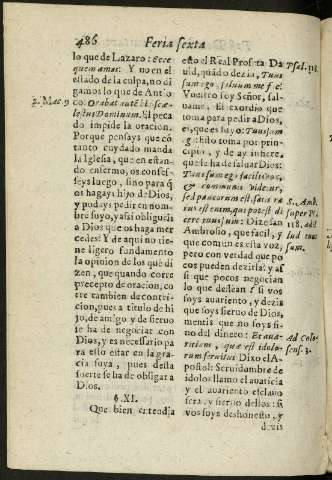 486 Feria sexta
lo que de Lazaro: Ecce
quem amas. Y no en el
estado de la culpa, no di
gamos lo que de Antio
2. Mac. 9
co: Orabat autē hic scæ
lestus Dominum. El peca
do impide la oracion.
Porque pensays que cō
tanto cuydado manda
la Iglesia, que en estan-
do enfermo, os confes-
seys luego, sino para q̃
os hagays hijo de Dios,
y podays pedir en nom-
bre suyo, y assi obligueis
a Dios que os haga mer
cedes? Y de aqui no tie-
ne ligero fundamento
la opinion de los que di
zen, que quando corre
precepto de oracion, co
rre tambien de contri-
cion, pues a titulo de hi
jo, de amigo y de sieruo
se ha de negociar con
Dios, y es necessario pa
ra esto estar en la gra-
cia suya, pues desta
suerte se ha de obligar a
Dios.
§. XI.
Que bien entendia
esto el Real Profeta Da
Psal. 118.
uid, quādo dezia, Tuus
sum ego, saluum me fac.
Vuestro soy Señor, sal-
uame. El exordio que
toma para pedir a Dios,
ei, que es hijo: Tuus sum
ego: esto toma por prin-
cipio, y de ay infiere,
que le ha de saluar Dios:
Tuus sum ego facilis vox,
& communis videtur,
sed paucorum est: satis ra
S. Amb.
super Ps.
118. ad il
lud tuus
sum.
rus est enim, qui potest di
cere tuus sum; Dize san
Ambrosio, que facil, y
que comun es esta voz,
pero con verdad que po
cos pueden dezirla! y as
si que pocos negocian
lo que dessean! si vos
soys auariento, y dezis
que soys sieruo de Dios,
mentis que no soys si-
no del dinero: Et aua-
Ad Colo
sens. 3.
ritiam, quæ est idolo-
rum seruitus. Dixo el A-
postol: Seruidumbre de
idolos llamo el auaricia
y el auariento esclauo
sera, y sieruo dellos: si
vos soys deshonesto, y
dezis